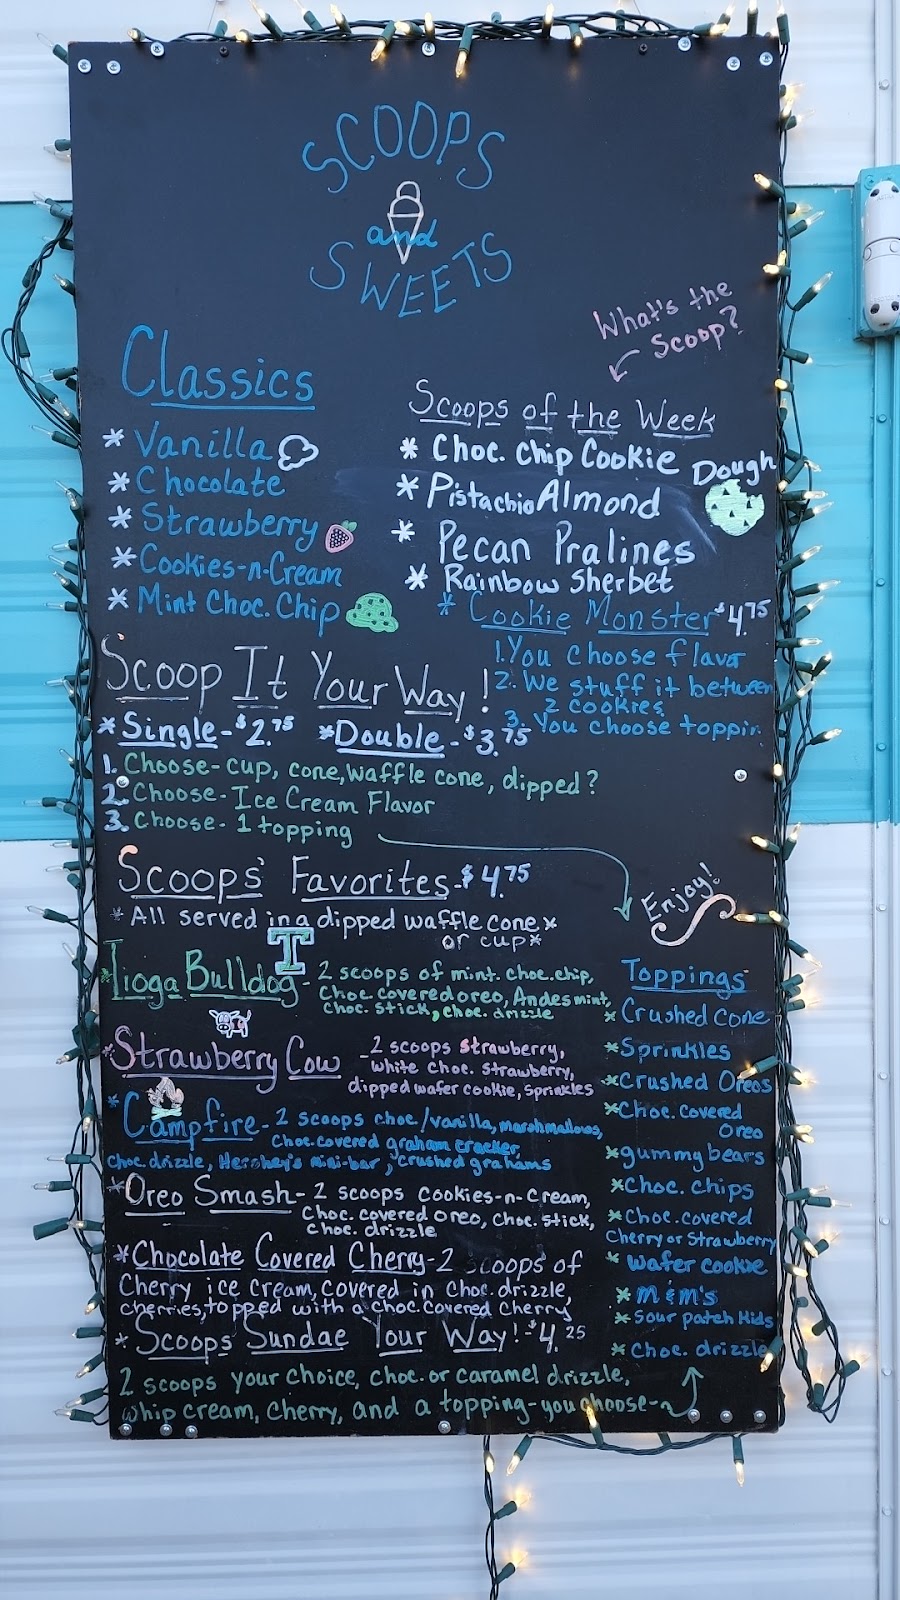 SCOOPS
and
SWEETS
What's the
Scoop?
Classics
* Vanilla
* Chocolate
* Strawberry
* Cookies-n-Cream
* Mint Choc. Chip
Scoops of the Week
* Choc. Chip Cookie Dough
* Pistachio Almond
* Pecan Pralines
* Rainbow Sherbet
* Cookie Monster $4.75
1. You choose flavor
2. We stuff it between
2 cookies
3. You choose toppin
Scoop It Your Way!
* Single - $2.75 * Double - $3.75
1. Choose - cup, cone, waffle cone, dipped?
2. Choose - Ice Cream Flavor
3. Choose - 1 topping
Scoops' Favorites - $4.75
* All served in a dipped waffle cone *
or cup *
T
* Tioga Bulldog - 2 scoops of mint choc. chip,
Choc covered oreo, Andes mint,
choc. stick, choc. drizzle
* Strawberry Cow - 2 scoops strawberry,
white choc. strawberry,
dipped wafer cookie, sprinkles
* Campfire - 2 scoops choc/vanilla, marshmallows,
Choc. covered graham cracker,
choc. drizzle, Hershey's mini-bar, crushed grahams
* Oreo Smash - 2 scoops cookies-n-cream,
choc. covered oreo, choc. stick,
choc. drizzle
* Chocolate Covered Cherry - 2 scoops of
Cherry ice cream, covered in choc. drizzle,
cherries, topped with a choc. covered cherry
* Scoops Sundae Your Way! - $4.25
2 scoops your choice, choc. or caramel drizzle,
whip cream, cherry, and a topping - you choose -
Enjoy!
Toppings
* Crushed cone
* Sprinkles
* Crushed Oreos
* Choc. covered
Oreo
* gummy bears
* Choc. chips
* Choc. covered
Cherry or Strawberry
* wafer cookie
* M & M's
* Sour patch kids
* Choc. drizzle